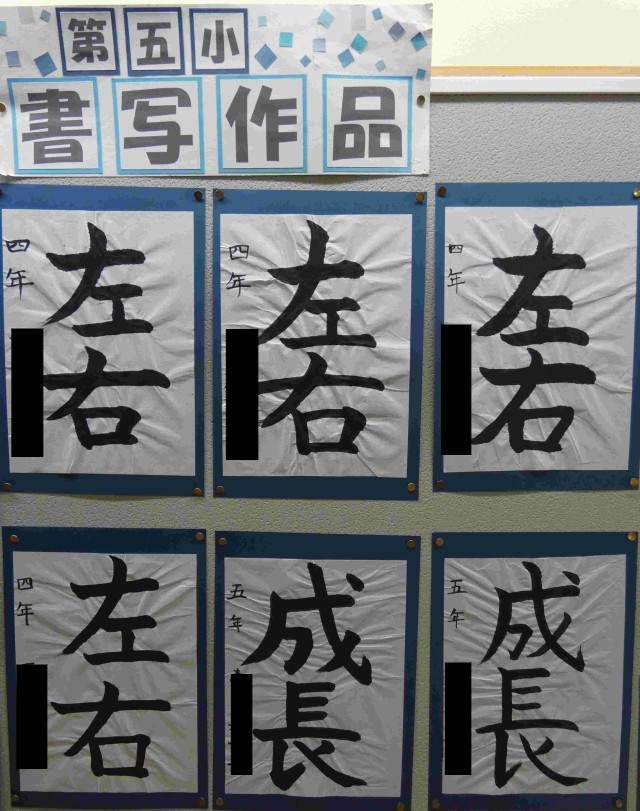 第五小
書写作品
左右
四年
左右
四年
左右
四年
左右
四年
成長
五年
成長
五年